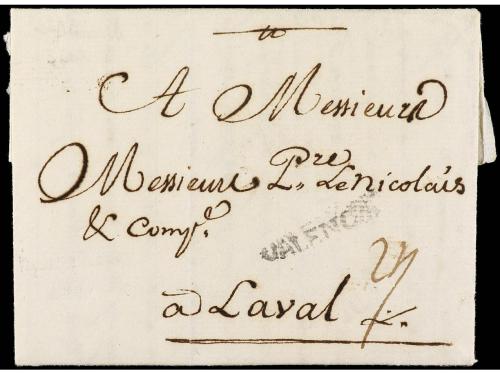 A Messieurs
Messieurs Pre. Le Nicolais
& Compe.
VALENCIA
a Laval